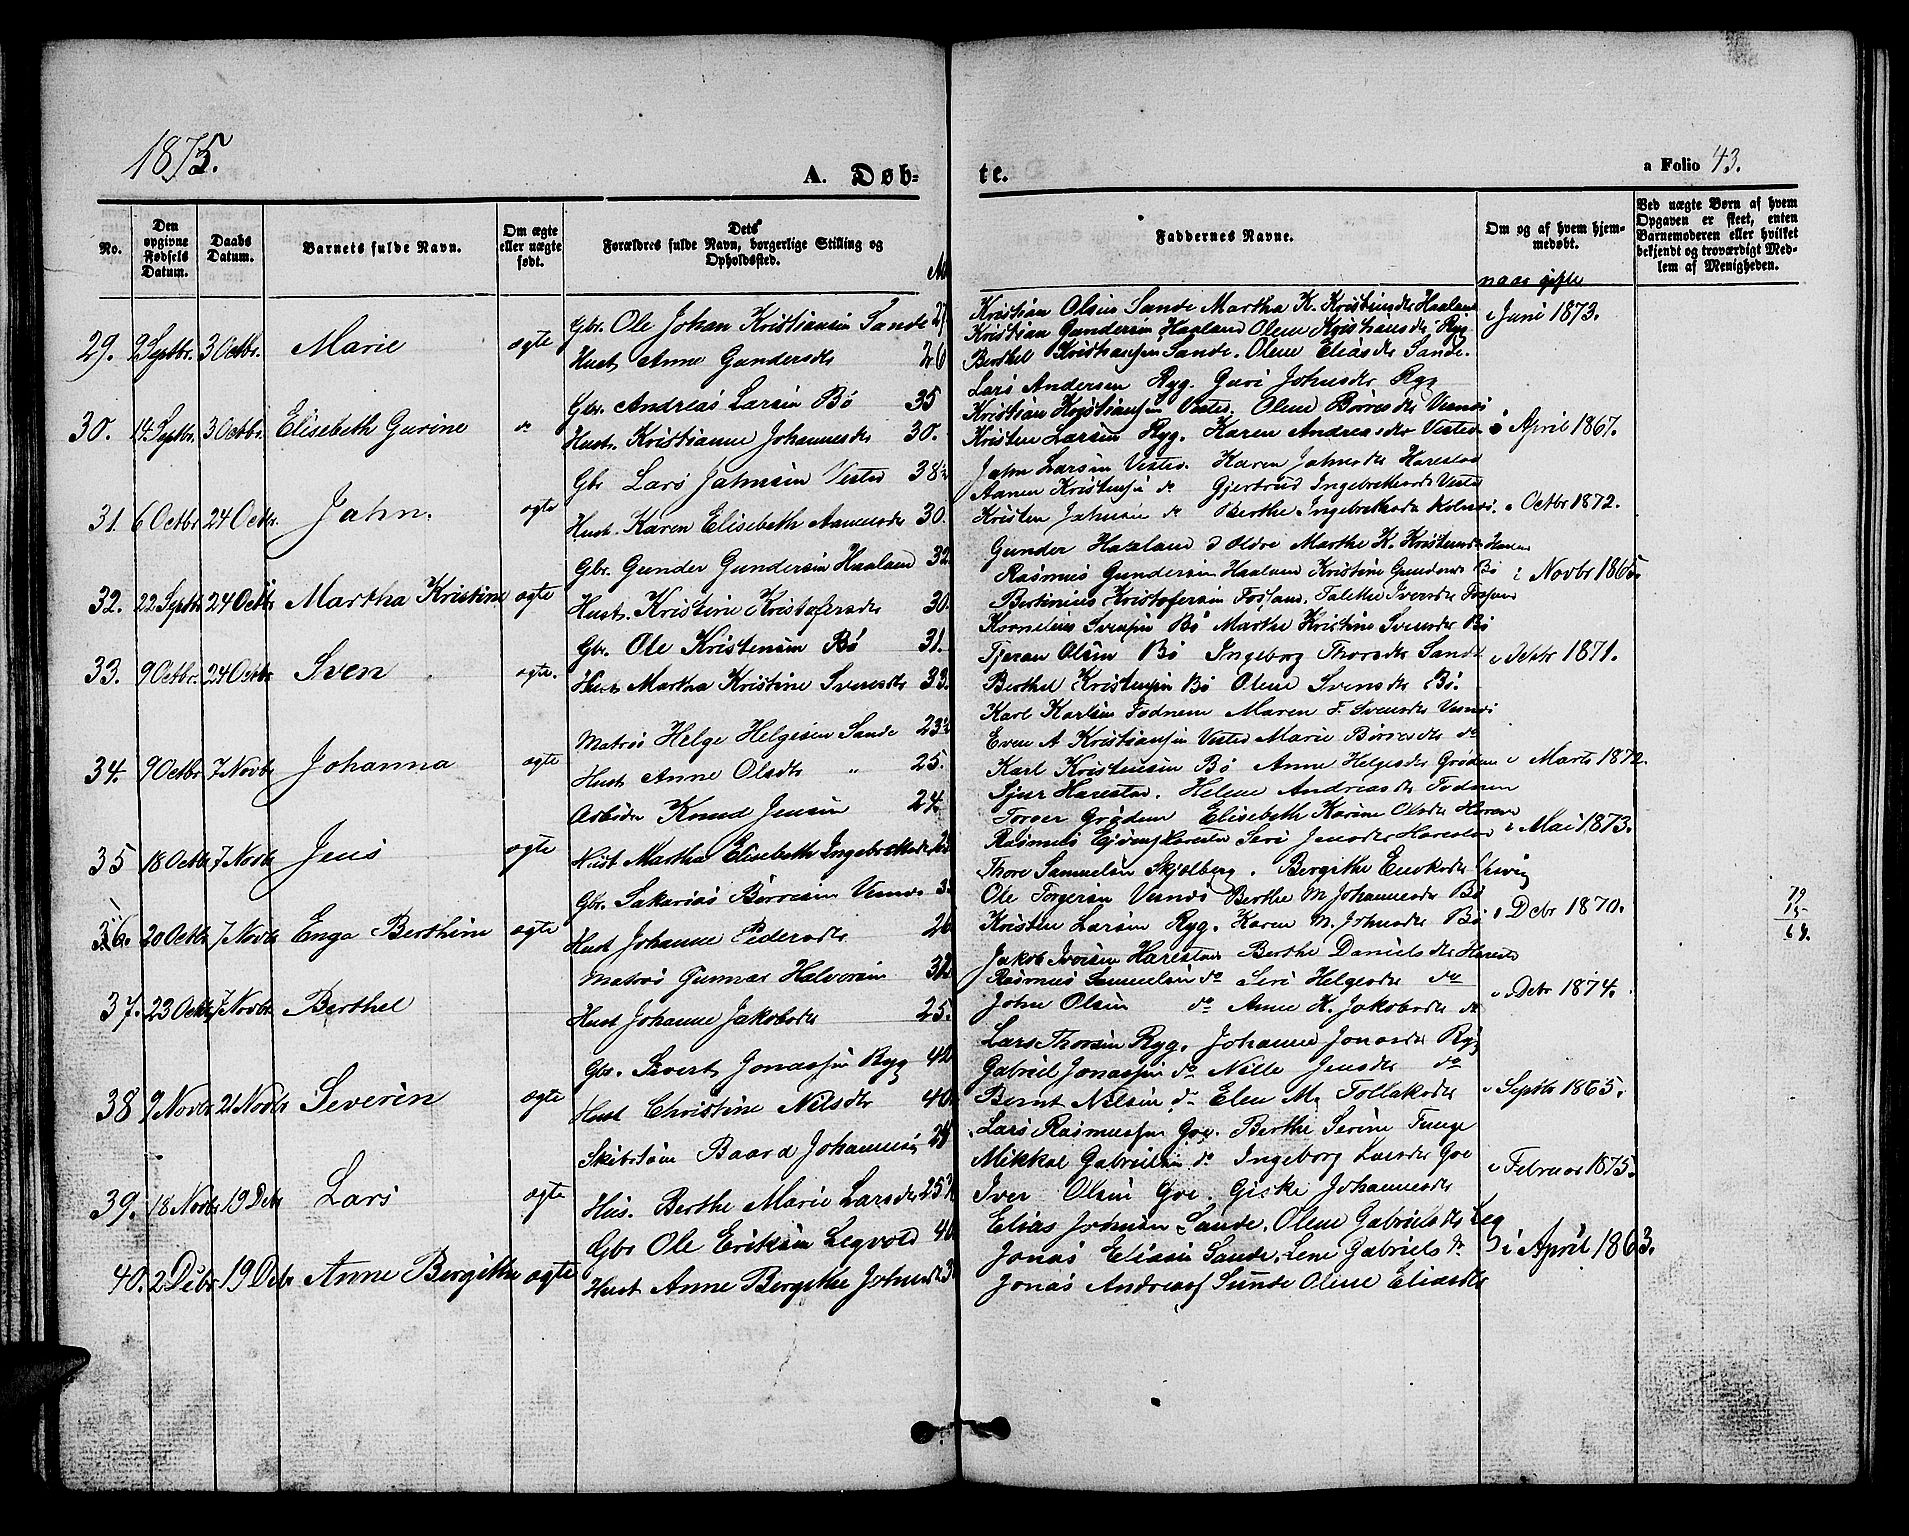 1875.
A. Døb-
te.
a Folio 43.
No.
Den opgivne Fødsels Datum.
Daabs Datum.
Barnets fulde Navn.
Om ægte eller uægte født.
Dets Forældres fulde Navn, borgerlige Stilling og Opholdssted.
Faddernes Navne.
Om og af hvem hjemmedøbt.
naar gifte
Ved uægte Børn af hvem Opgaven er skeet, enten Barnemoderen eller hvilket bekjendt og troværdigt Medlem af Menigheden.
29. 2 Septbr. 3 Octbr. Marie ægte
Gbr. Ole Johan Kristiansen Sande 27
Hust. Anne Gundersdtr 26
Kristian Olsen Sande Martha K. Kristensdtr Haaland
Kristian Gundersen Haaland Olene Kristiansdtr Ryg
Berthel Kristiansen Sande. Olene Eliasdtr Sande.
i Juni 1873.
30. 14 Septbr. 3 Octbr. Elisebeth Gurine do
Gbr. Andreas Larsen Bø 35
Hust. Kristianne Johannesdtr 30.
Lars Andersen Ryg. Guri Johnsdtr Ryg
Kristian Kristiansen Vested. Olene Børresdtr Vesnæs
Kristen Larsen Ryg. Karen Andreasdtr Vested
i April 1867.
31. 6 Octbr. 24 Octbr. Jahn. ægte
Gbr Lars Jahnsen Vested 38½
Hust. Karen Elisebeth Aanensdtr 30.
Jahn Larsen Vested. Karen Jahnsdtr Harestad
Aanen Kristensen do Gjertrud Ingebretsdtr Vested
Kristen Jahnsen do Berthe Ingebretsdtr
i Octbr 1872.
32. 22 Septbr 24 Octbr Martha Kristine ægte
Gbr. Gunder Gundersen Haaland 32.
Hust. Kristine Kristofersdtr 30.
Gunder Haaland d Oldre Marthe K. Kristensdtr
Rasmus Gundersen Haaland Kristine Gundersdtr Bø
Bertinius Kristofersen Fosland. Talette Iversdtr
i Novbr 1865.
33. 9 Octbr. 24 Octbr Sven ægte.
Gbr. Ole Kristensen Bø 31.
Hust Martha Kristine Svensdtr 33.
Kornelius Svensen Bø Marthe Kristine Svensdtr Bø
Tjeran Olsen Bø Ingeborg Thorsdtr Sande
Berthel Kristensen Bø Olene Svensdtr Bø.
i Octbr 1871.
34. 9 Octbr 7 Novbr Johanna ægte
Matros Helge Helgesen Sande 23½
Hust Anne Olsdtr " 25.
Karl Karlsen Fodnem Maren F. Svensdtr Vesnæs
Even A Kristiansen Vested Marie Børresdtr do
Karl Kristensen Bø Anne Helgesdtr Grødem
i Marts 1872.
35 18 Octbr 7 Novbr Jens ægte
Arbeider Knud Jensen 24.
Hust Martha Elisebeth Ingebretsdtr
Sjur Harestad. Helene Andreasdtr Fodnem
Torger Grødem Elisebeth Karine Olsdtr
Rasmus Harestad Seri Jensdtr Harestad
i Mai 1873.
36. 20 Octbr 7 Novbr Enga Berthine ægte
Gbr. Sakarias Børresen Vesnæs
Hust Johanne Pedersdtr 26
Thore Samuelsen Skjølberg. Bergithe
Ole Torgersen Vesnæs Berthe M Johannesdtr Bø
Kristen Larsen Ryg. Karen M. Johnsdtr Bø
i Debr 1870.
79
15
64.
37. 23 Octbr 7 Novbr Berthel
Matros Gunnar Halvorsen 32
Hust Johanne Jakobsdtr 25.
Jakob Iversen Harestad Berthe Danielsdtr Harestad
Rasmus Samuelsen do Seri Helgesdtr do
John Olsen do Anne K. Jakobsdtr do
i Debr 1874.
38 9 Novbr 21 Novbr Severin ægte
Gbr. Sivert Jonassen Ryg 42
Hust Christine Nilsdtr 40.
Lars Thorsen Ryg. Johanne Jonasdtr Ryg
Gabriel Jonassen do Nille Jensdtr do
Bernt Nilsen do Elen M. Tollaksdtr
i Septbr 1865.
39. 18 Novbr 19 Debr Lars ægte
Skibstøm Baard Johannesen 28
Hus. Berthe Marie Larsdtr 25¾
Lars Rasmussen Goe. Berthe Serine Tunge
Mikkal Gabrielsen do Ingeborg Larsdtr Goe
Iver Olsen Goe. Giske Johannesdtr
i Februar 1875.
40. 2 Debr 19 Debr Anne Bergithe ægte
Gbr Ole Eriksen Legvold 40.
Hust Anne Bergithe Johnsdtr
Elias Jonasen Sande. Olene Gabrielsdtr
Jonas Eliasen Sande. Lene Gabriels do
Jonas Andreas Sunde Olene Eliasdtr
i April 1863.